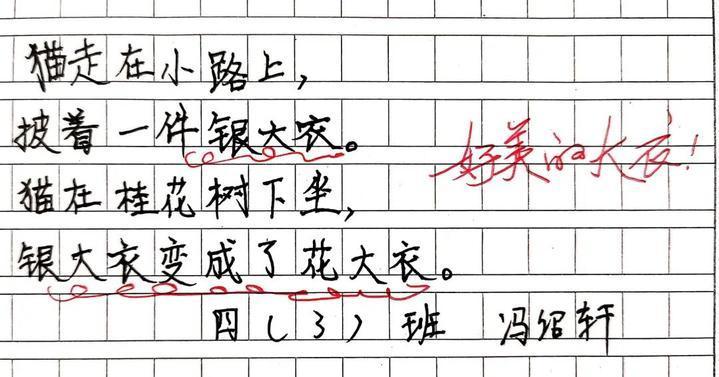 猫走在小路上，
披着一件银大衣。
好美的大衣！
猫在桂花树下坐，
银大衣变成了花大衣。
四（3）班 冯绍轩